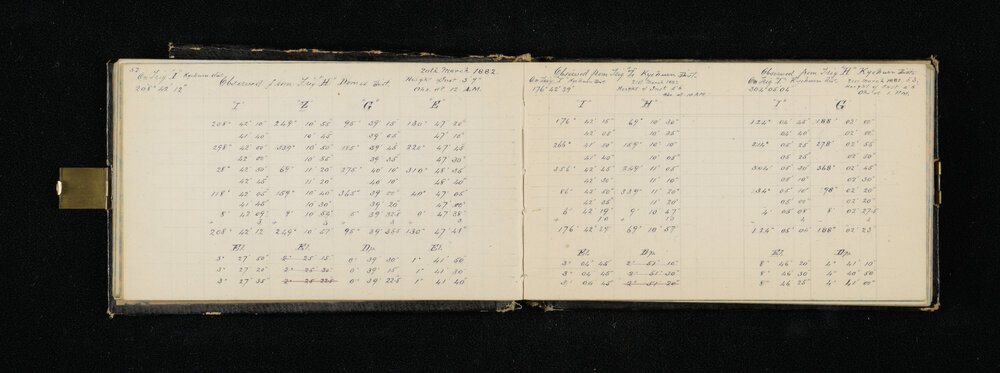 52
On Trig I Kyeburn Dist.
208° 42' 12"
Observed from Trig "H" Domes Dist.
20th March 1882
Height of Inst 3.9"
Obs. at 12 A.M.
I Z G E
208° 42' 10" 249° 10' 55" 95° 39' 15" 130° 47' 20"
41 40" 10' 45" 39' 05" 47' 10"
298° 42' 00" 339° 10' 50" 185° 39' 45" 220° 47' 45"
42 00" 10' 55" 39' 35" 47' 30"
28° 42' 50" 69° 11' 20" 275° 40' 10" 310° 48' 35"
42' 45" 11' 20" 40' 10" 48' 40"
118° 42' 05" 159° 10' 40" 365° 39' 20" 40° 47' 05"
41' 45" 10' 30" 39' 20" 47' 00"
8° 42' 09" 9° 10' 54" 5° 39' 32.5 0° 47' 38"
208° 42' 12 249° 10' 57" 95° 39' 35.5 130° 47' 48"
El. El. Dp. El.
3° 27' 50" 2° 25' 15" 0° 39' 30" 1° 41' 50"
3° 27' 20" 2° 25' 30" 0° 39' 15" 1° 41' 30"
3° 27' 35" 2° 25 22.5 0° 39' 22.5 1° 41' 40"
Observed from Trig Z Kyeburn Dist.
On Trig I Kyeburn Dist
176° 42' 29"
21st March 1882
Height of Inst
Obs at 10 A.M.
I H
176° 42' 15" 69° 10' 30"
42' 05" 10' 35"
266° 41' 50" 159° 10' 10"
41' 40" 10' 05"
356° 42' 45" 249° 11' 05"
42' 30" 11' 10"
86° 42' 50" 339° 11' 20"
42' 35" 11' 20"
6° 42' 19" 9° 10' 47"
176° 42' 29" 69° 10' 57"
El. Dp.
3° 04' 45" 2° 51' 10"
3° 04' 45" 2° 51' 30"
3° 04' 45" 2° 51' 20"
Observed from Trig "H" Kyeburn Dist.
53
On Trig "I" Kyeburn Dist.
304° 05' 04"
21st March 1882
Height of Inst
Obs at 1 P.M.
I G
124° 04' 45" 188° 02' 00"
04' 40" 02' 00"
214° 05' 25" 278° 02' 55"
05' 25" 02' 50"
304° 05' 30" 368° 02' 45"
05' 10" 02' 30"
34° 05' 10" 98° 02' 20"
05' 00" 02' 20"
4° 05' 08" 8° 02' 27.5
124° 05' 04" 188° 02' 23
El. Dp.
8° 46' 20" 4° 41' 10"
8° 46' 30" 4° 40' 50"
8° 46' 25" 4° 41' 00"